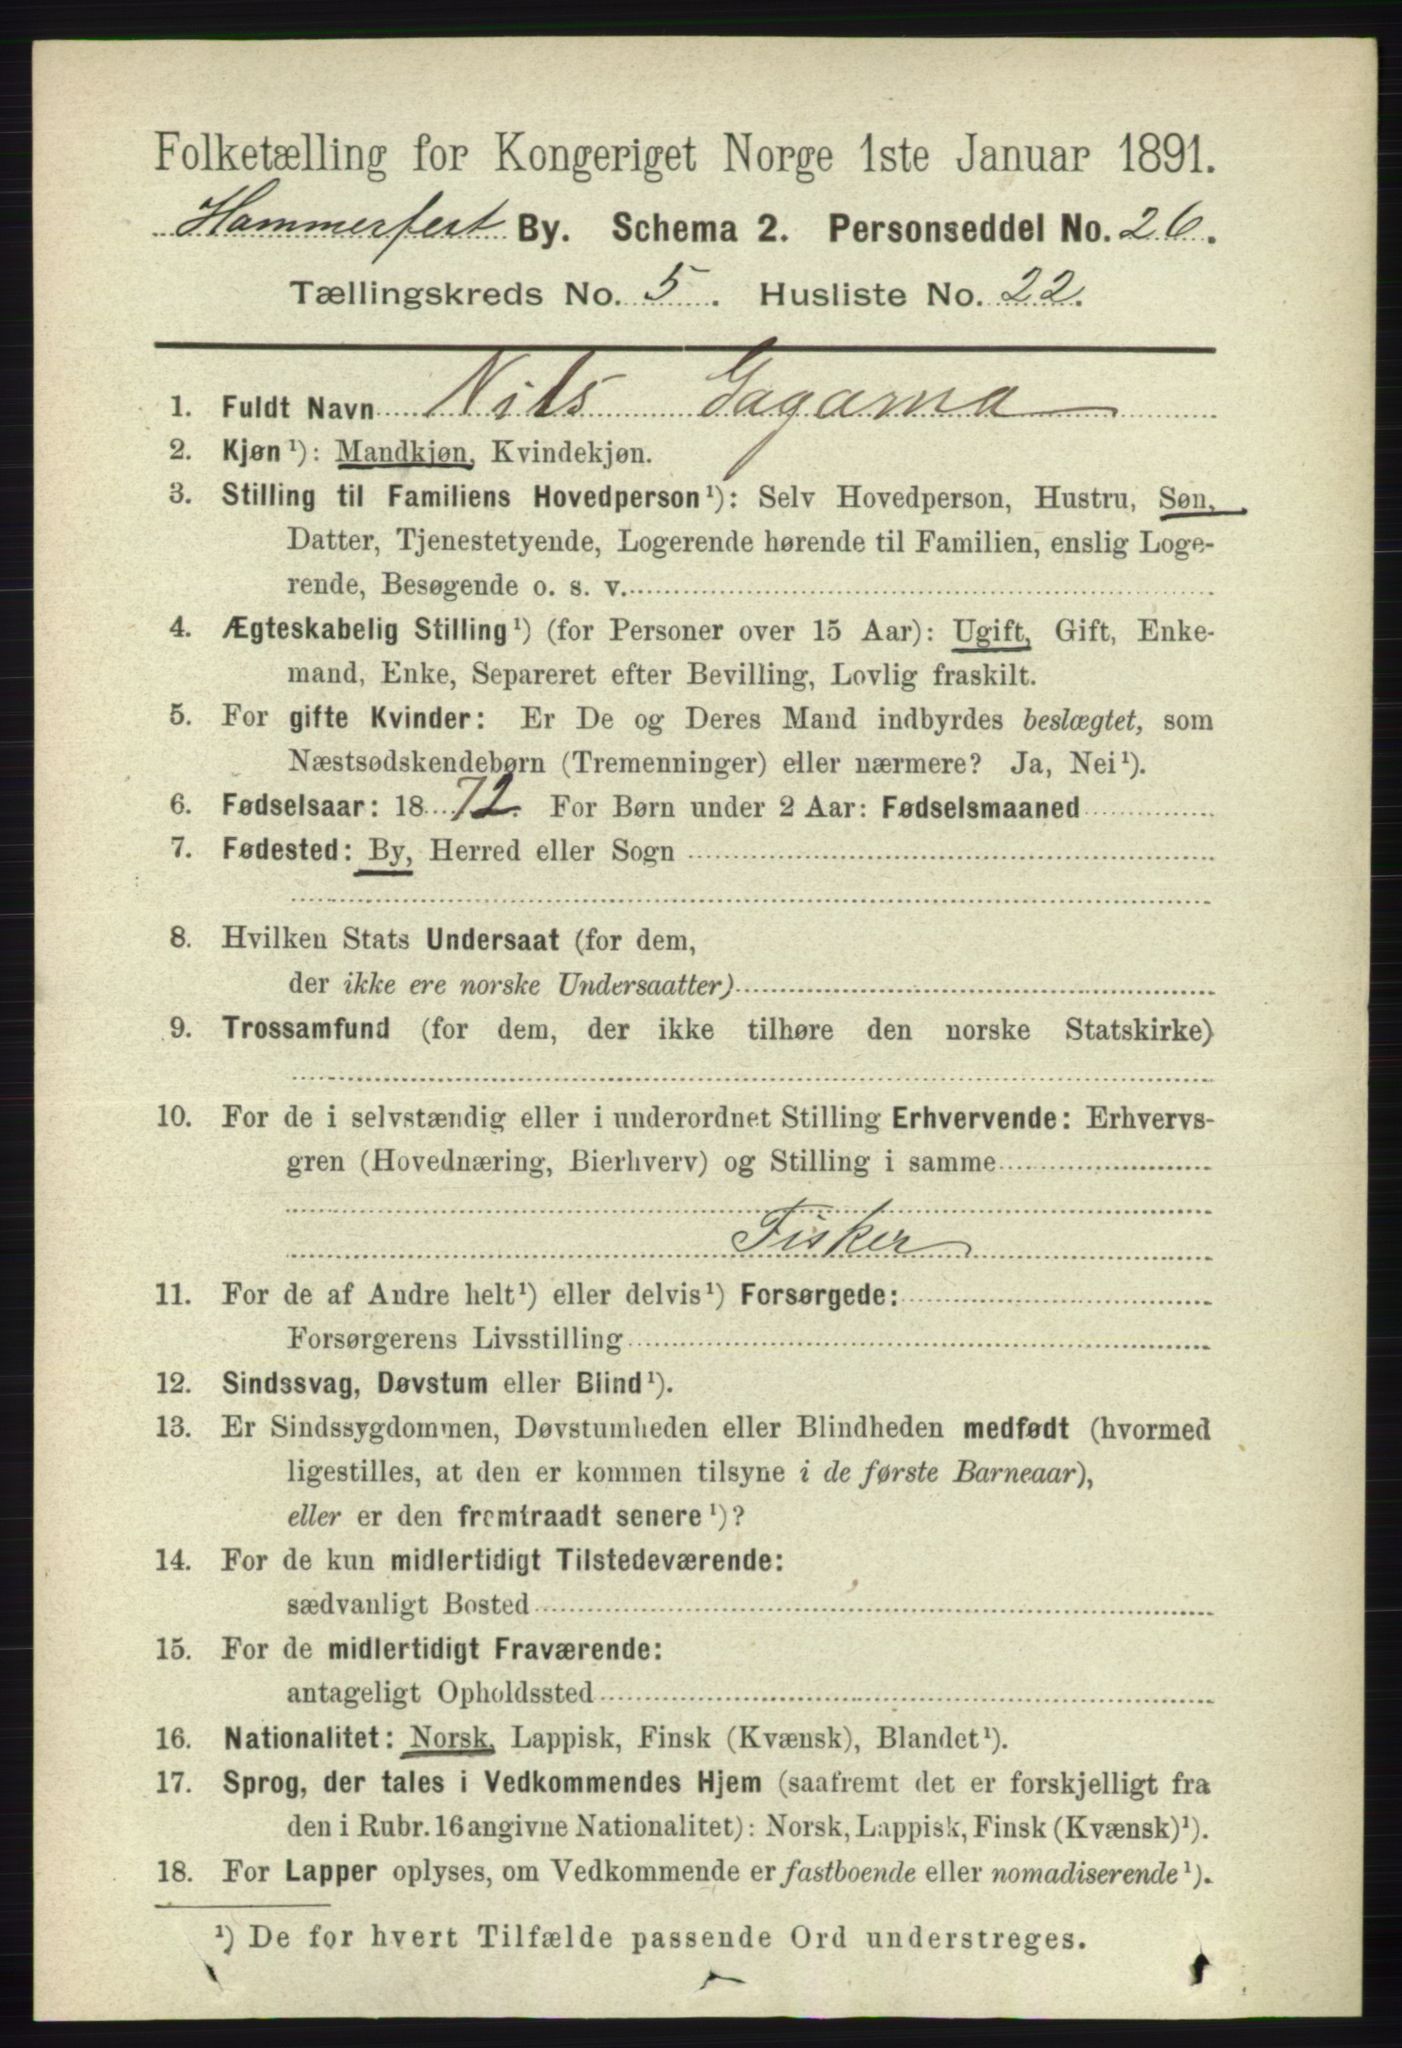 Folketælling for Kongeriget Norge 1ste Januar 1891.
Hammerfest By. Schema 2. Personseddel No. 26.
Tællingskreds No. 5. Husliste No. 22.
1. Fuldt Navn Nils Gagama
2. Kjøn¹): Mandkjøn, Kvindekjøn.
3. Stilling til Familiens Hovedperson¹): Selv Hovedperson, Hustru, Søn,
Datter, Tjenestetyende, Logerende hørende til Familien, enslig Loge-
rende, Besøgende o. s. v.
4. Ægteskabelig Stilling¹) (for Personer over 15 Aar): Ugift, Gift, Enke-
mand, Enke, Separeret efter Bevilling, Lovlig fraskilt.
5. For gifte Kvinder: Er De og Deres Mand indbyrdes beslægtet, som
Næstsødskendebørn (Tremenninger) eller nærmere? Ja, Nei¹).
6. Fødselsaar: 1872. For Børn under 2 Aar: Fødselsmaaned
7. Fødested: By, Herred eller Sogn
8. Hvilken Stats Undersaat (for dem,
der ikke ere norske Undersaatter)
9. Trossamfund (for dem, der ikke tilhøre den norske Statskirke)
10. For de i selvstændig eller i underordnet Stilling Erhvervende: Erhvervs-
gren (Hovednæring, Bierhverv) og Stilling i samme
Fisker
11. For de af Andre helt¹) eller delvis¹) Forsørgede:
Forsørgerens Livsstilling
12. Sindssvag, Døvstum eller Blind¹).
13. Er Sindssygdommen, Døvstumheden eller Blindheden medfødt (hvormed
ligestilles, at den er kommen tilsyne i de første Barneaar),
eller er den fremtraadt senere¹)?
14. For de kun midlertidigt Tilstedeværende:
sædvanligt Bosted
15. For de midlertidigt Fraværende:
antageligt Opholdssted
16. Nationalitet: Norsk, Lappisk, Finsk (Kvænsk), Blandet¹).
17. Sprog, der tales i Vedkommendes Hjem (saafremt det er forskjelligt fra
den i Rubr. 16 angivne Nationalitet): Norsk, Lappisk, Finsk (Kvænsk)¹).
18. For Lapper oplyses, om Vedkommende er fastboende eller nomadiserende¹).
¹) De for hvert Tilfælde passende Ord understreges.